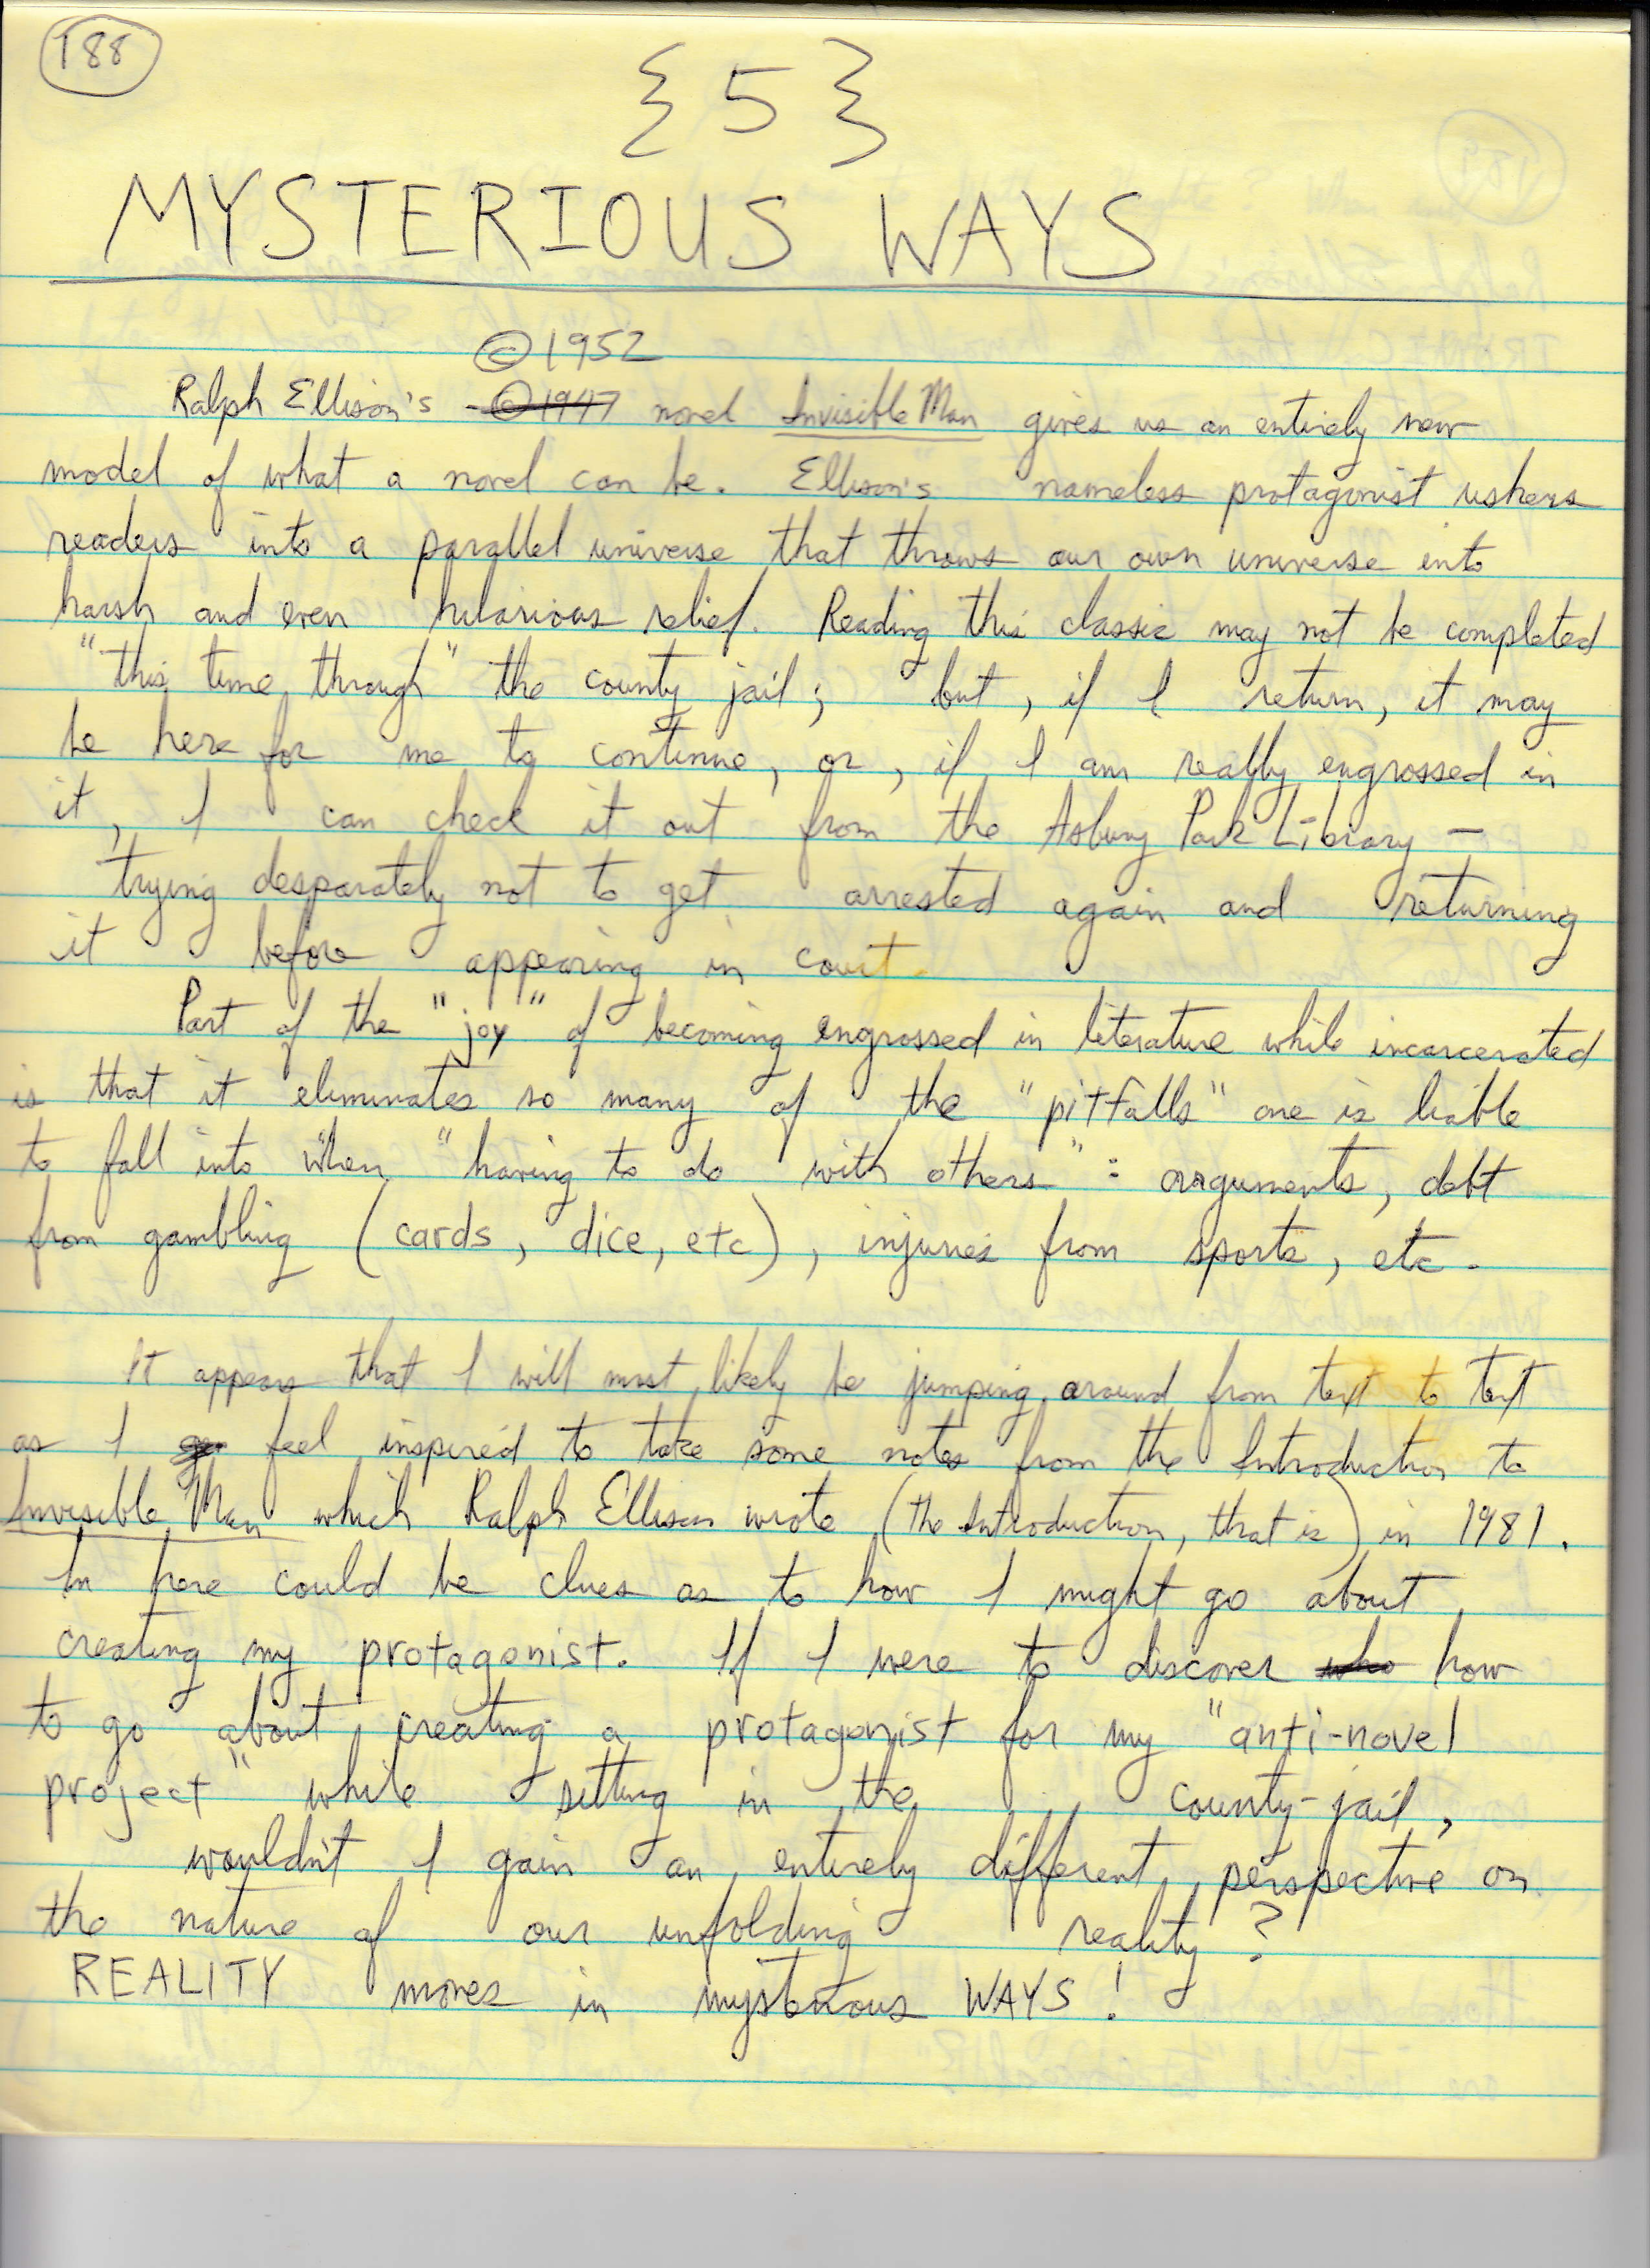 188
{5}
MYSTERIOUS WAYS
©1952
Ralph Ellison's ©1947 novel Invisible Man gives us an entirely new
model of what a novel can be. Ellison's nameless protagonist ushers
readers into a parallel universe that throws our own universe into
harsh and even hilarious relief. Reading this classic may not be completed
"this time through" the county jail; but, if I return, it may
be here for me to continue, or, if I am really engrossed in
it, I can check it out from the Asbury Park Library —
trying desparately not to get arrested again and returning
it before appearing in court.
Part of the "joy" of becoming engrossed in literature while incarcerated
is that it eliminates so many of the "pitfalls" one is liable
to fall into when "having to do with others": arguments, debt
from gambling (cards, dice, etc), injuries from sports, etc.
It appears that I will most likely be jumping around from text to text
as I feel inspired to take some notes from the Introduction to
Invisible Man which Ralph Ellison wrote (the Introduction, that is) in 1981.
In here could be clues as to how I might go about
creating my protagonist. If I were to discover who how
to go about creating a protagonist for my "anti-novel
project" while sitting in the county-jail,
wouldn't I gain an entirely different perspective on
the nature of our unfolding reality?
REALITY moves in mysterious WAYS!